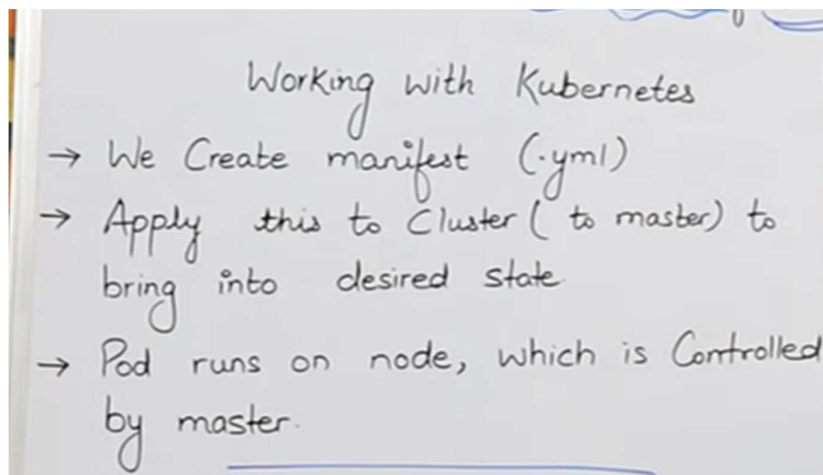 Working with Kubernetes
→ We Create manifest (.yml)
→ Apply this to Cluster ( to master) to
bring into desired state
→ Pod runs on node, which is Controlled
by master.